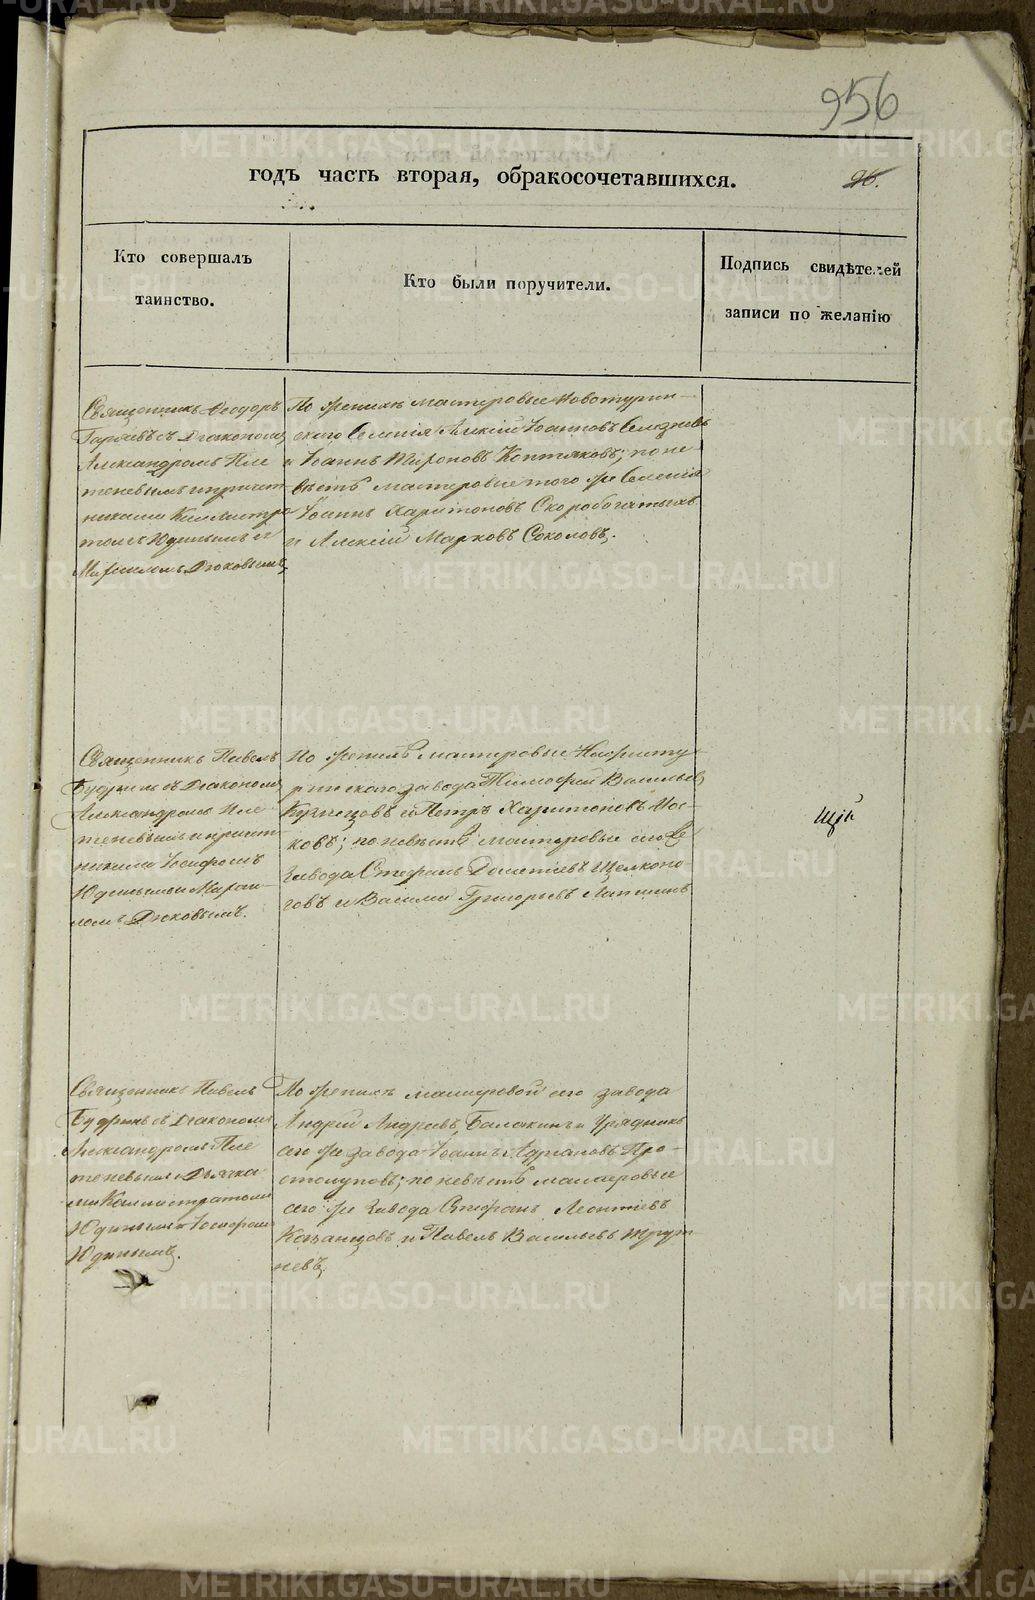 956
годъ часть вторая, обракосочетавшихся.
26.
Кто совершалъ
таинство.
Кто были поручители.
Подпись свидѣтелей
записи по желанію
Священникъ Ѳеодоръ
съ Діакономъ
Александромъ Пле
теневымъ и причет
никами Каллистра
томъ Юдинымъ и
Михаиломъ Дюковымъ,
По женихѣ мастеровые Новотурин
скаго Селенія Алексѣй Іоанновъ Селезневъ
и Іоаннъ Мироновъ Коптяковъ; по не
вѣстѣ мастеровые того же Селенія
Іоаннъ Харитоновъ Скоробогатыхъ
и Алексѣй Марковъ Соколовъ.
Священникъ Павелъ
Будринъ съ Діакономъ
Александромъ Пле
теневымъ и причет
никами Іосифомъ
Юдинымъ и Михаи
ломъ Дюковымъ.
По женихѣ мастеровые Нижнету
ринскаго завода Тимофей Васильев
Кузнецовъ и Петръ Харитоновъ
ковъ; по невѣстѣ мастеровые сего же
завода Стефанъ Дометіевъ Щелконо
говъ и Василій Григорьевъ Лапшинъ
щій
Священникъ Павелъ
Будринъ съ Діакономъ
Александромъ Пле
теневымъ и Дьячка
ми Каллистратомъ
Юдинымъ и Іосифомъ
Юдинымъ.
По женихѣ мастеровой сего завода
Андрей Андреевъ Балакинъ и Урядникъ
сего же завода Іоаннъ Адріановъ Про
столуповъ; по невѣстѣ мастеровые
сего же завода Стефанъ Леонтіевъ
Казанцовъ и Павелъ Васильевъ Трут
невъ.
METRIKI.GASO-URAL.RU